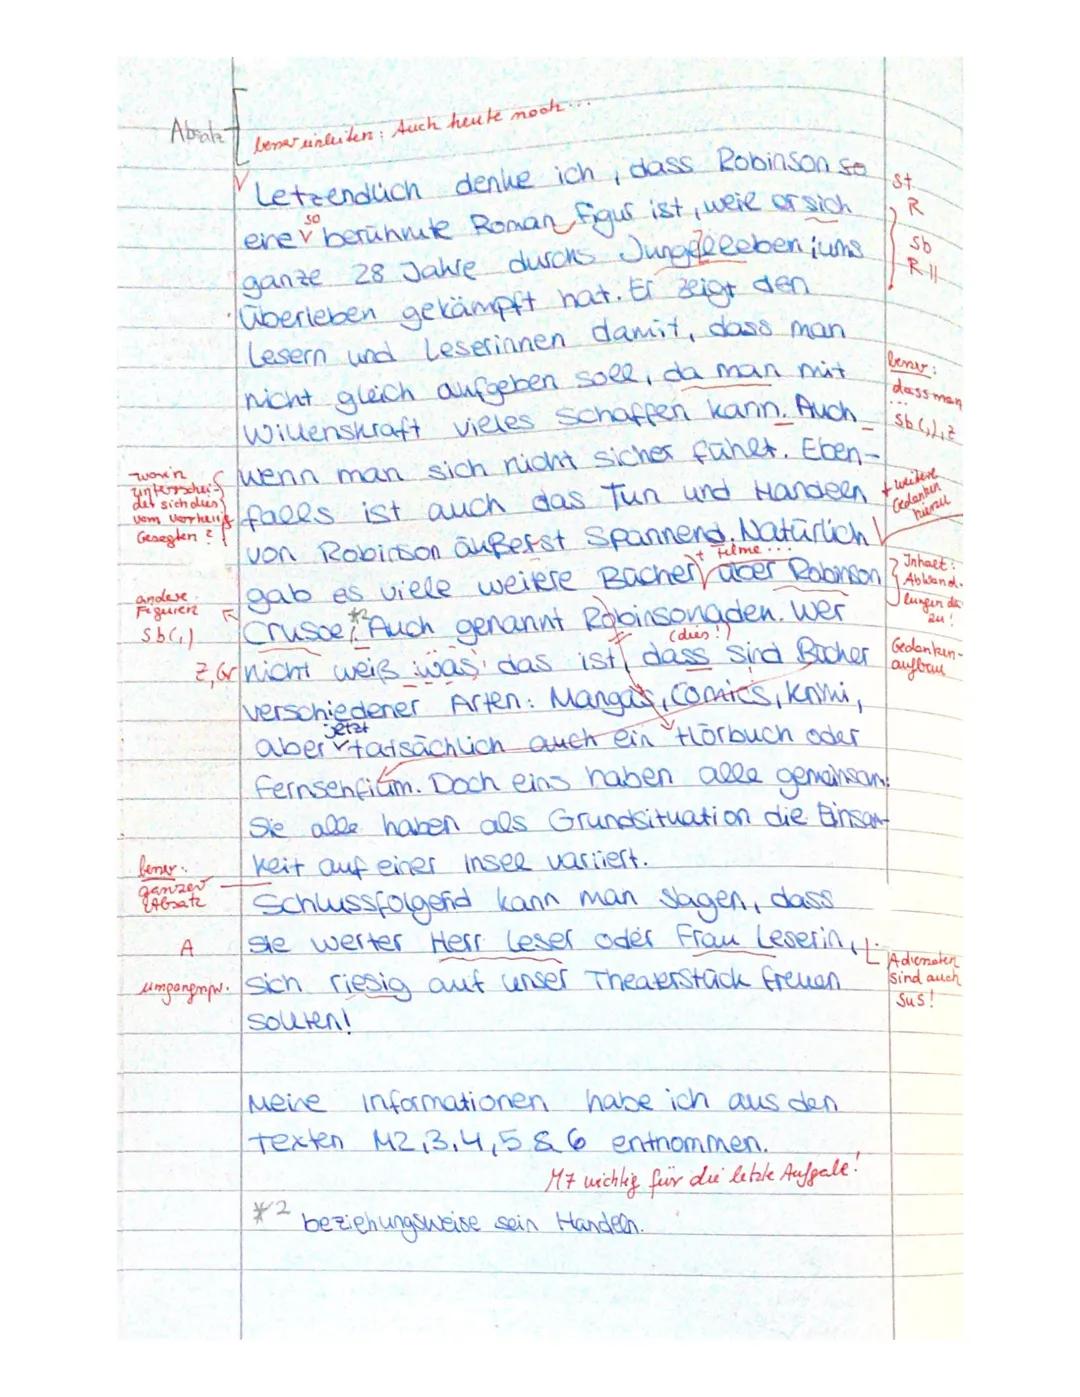 Absatz
besser einleiten: Auch heute noch...
Letzendlich denke ich, dass Robinson so
St
R
so
eine berühmte Roman Figur ist, weil er sich
Sb
R ||
ganze 28 Jahre durchs Jungelleben, ums
Überleben gekämpft hat. Er zeigt den
Lesern und Leserinnen damit, dass man
besser:
dass man
...
Sb(,), Z
nicht gleich aufgeben soll, da man mit
Willenskraft vieles schaffen kann. Auch
wenn man sich nicht sicher fühlt. Eben-
worin
unterschei-
det sich dies
vom vorherig
Gesagten?
+ weitere
Gedanken
hierzu
falls ist auch das Tun und Handeln
von Robinson äußerst Spannend. Natürlich
+ Filme...
gab es viele weitere Bücher über Robinson
Inhalt:
Abwand-
lungen da-
zu!
andere
Figuren
Sb(,)
Crusoe, *2 Auch genannt Robinsonaden. Wer
(dies!)
Z, Gr
nicht weiß was, das ist, dass sind Bücher
Gedanken-
aufbau
verschiedener Arten: Mangas, Comics, Krimi,
jetzt
aber tatsächlich auch ein Hörbuch oder
Fernsehfilm. Doch eins haben alle gemeinsam:
Sie alle haben als Grundsituation die Einsam-
keit auf einer Insel variiert.
besser:
ganzer
Absatz
Schlussfolgernd kann man sagen, dass
A
sie werter Herr Leser oder Frau Leserin,
Adressaten
sind auch
SuS!
umgangsspr.
sich riesig auf unser Theaterstück freuen
sollten!
Meine Informationen habe ich aus den
Texten M2,3,4,5 & 6 entnommen.
M7 wichtig für die letzte Aufgabe!
*2 beziehungsweise sein Handeln.